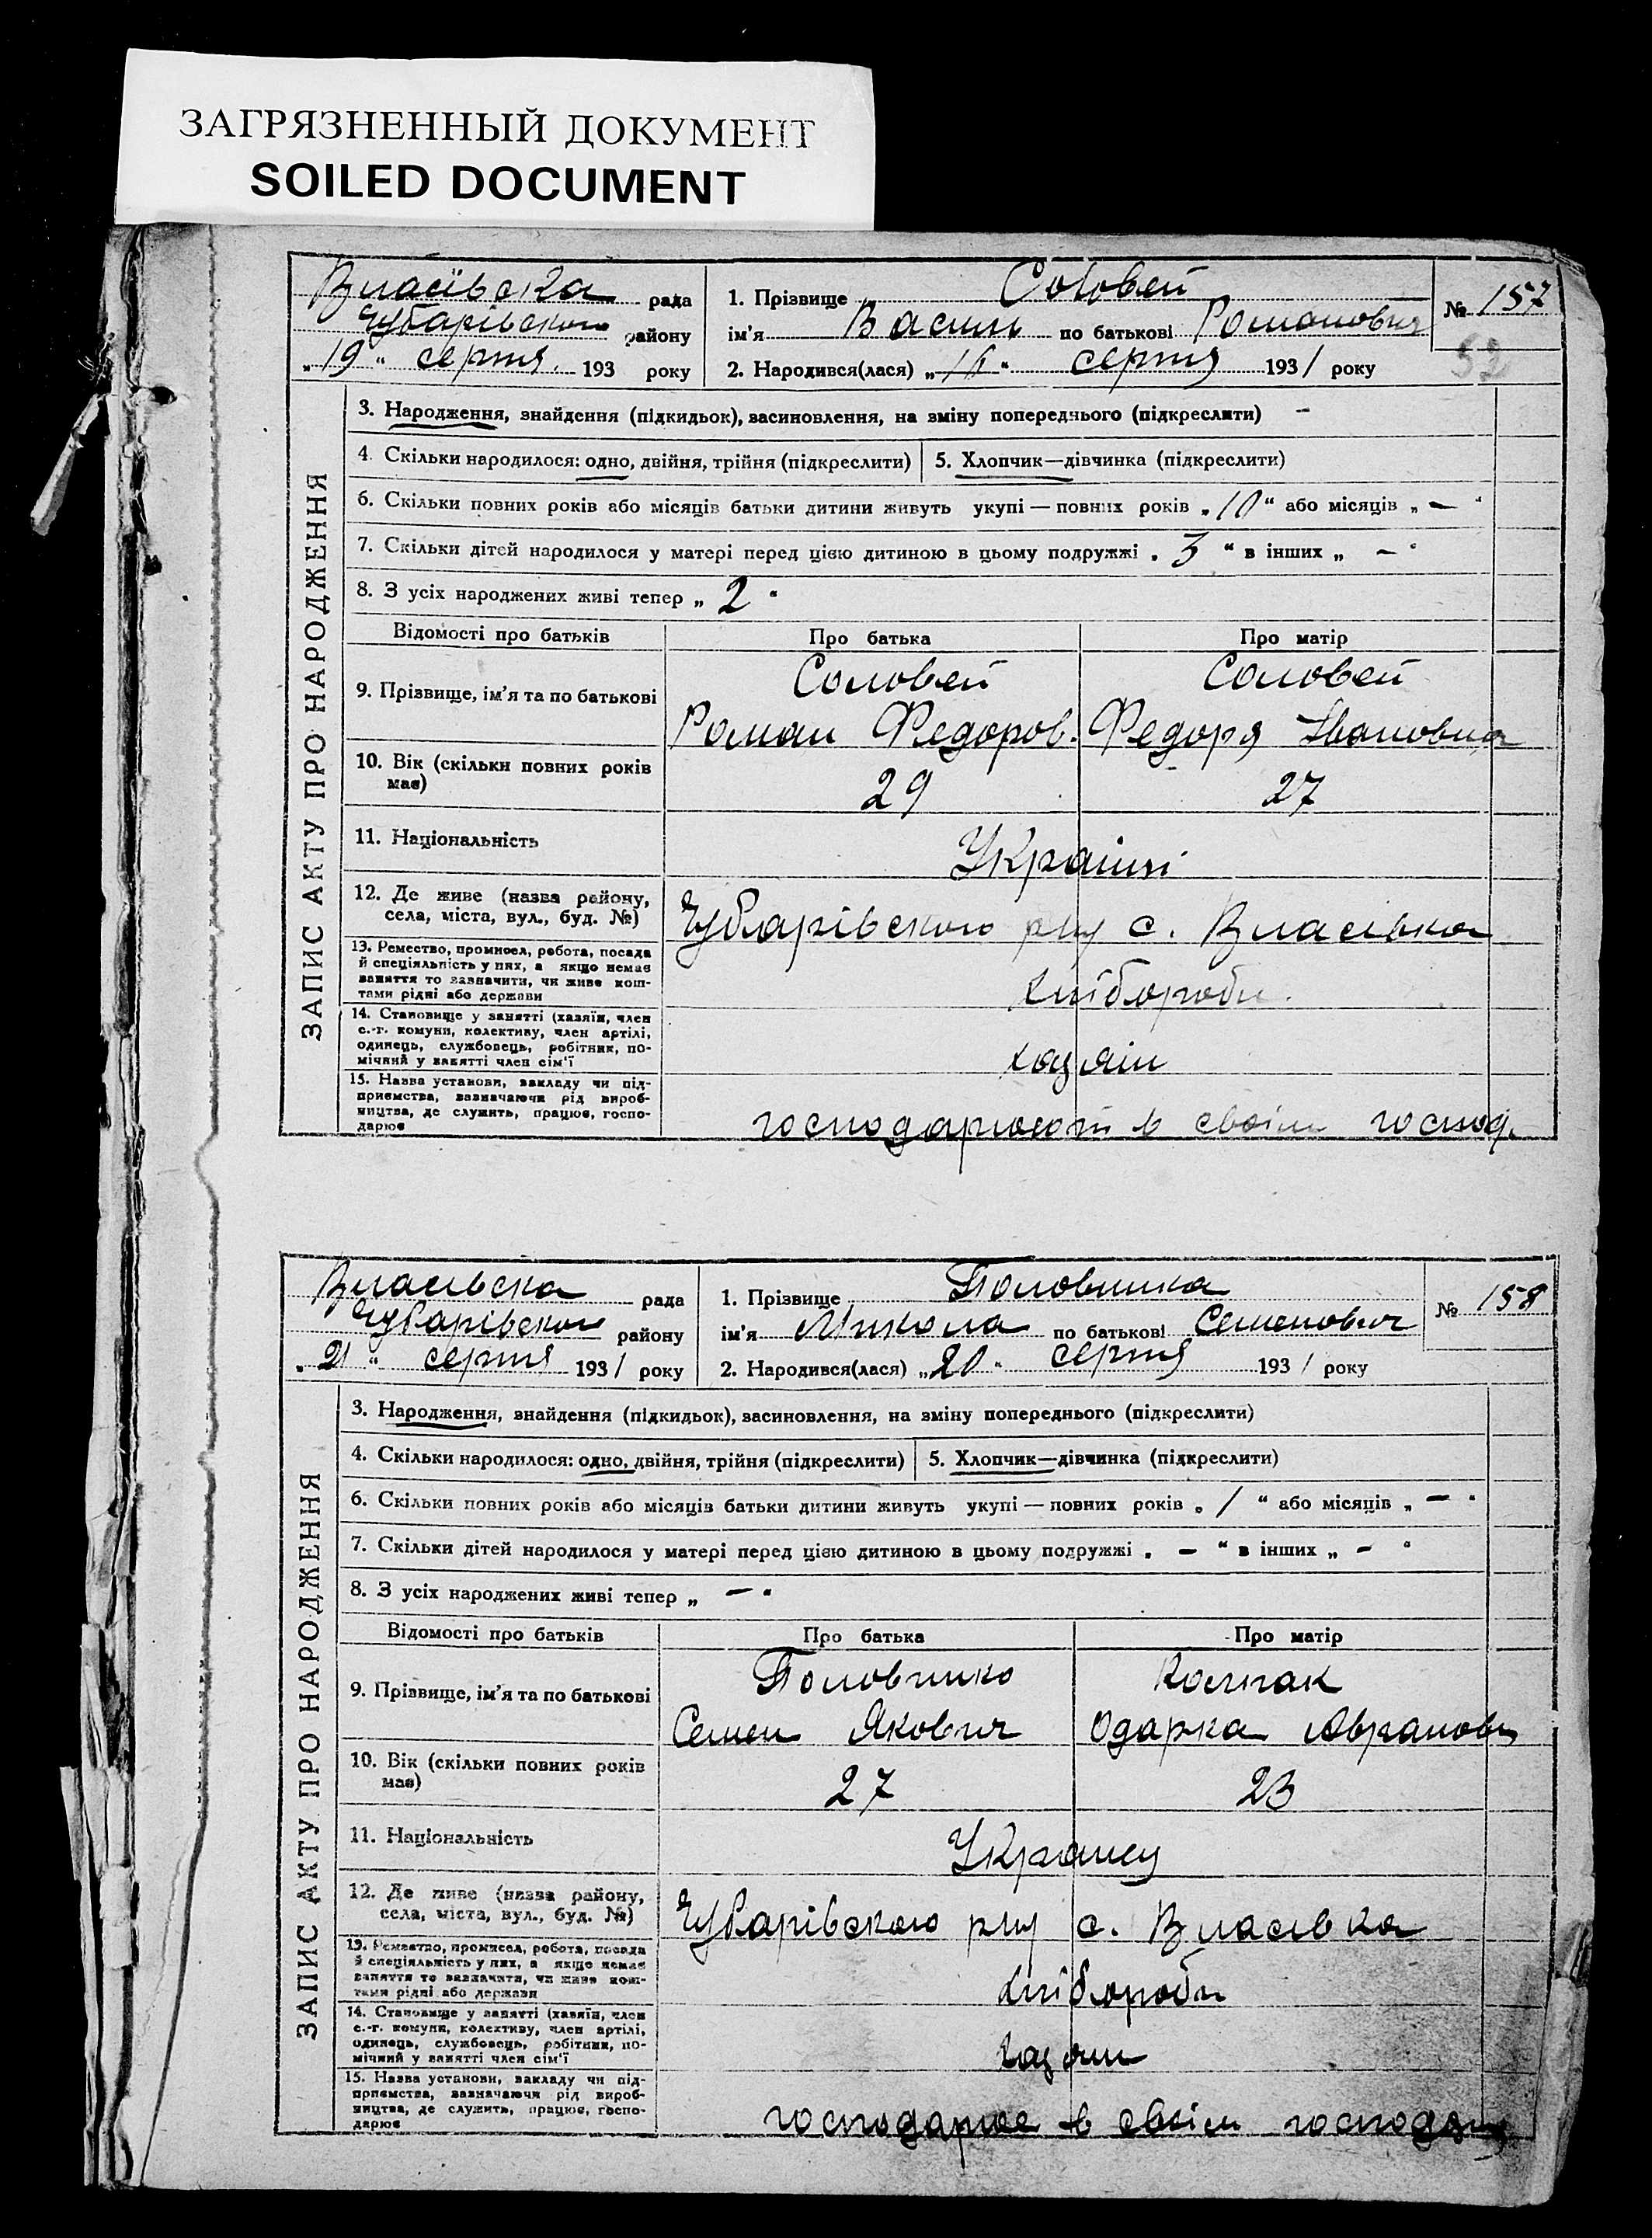 ЗАГРЯЗНЕННЫЙ ДОКУМЕНТ
SOILED DOCUMENT
Власівська рада
Чубарівського району
„19“ серпня 193 року
1. Прізвище Соловей
ім’я Василь по батькові Романович
2. Народився(лася) „16“ серпня 1931 року
№ 157
52
ЗАПИС АКТУ ПРО НАРОДЖЕННЯ
3. Народження, знайдення (підкидьок), засиновлення, на зміну попереднього (підкреслити) –
4. Скільки народилося: одно, двійня, трійня (підкреслити) 5. Хлопчик—дівчинка (підкреслити)
6. Скільки повних років або місяців батьки дитини живуть укупі — повних років „10“ або місяців „–“
7. Скільки дітей народилося у матері перед цією дитиною в цьому подружжі „3“ в інших „–“
8. З усіх народжених живі тепер „2“
Відомості про батьків Про батька Про матір
9. Прізвище, ім’я та по батькові
Соловей Соловей
Роман Федоров. Федоря Івановна
10. Вік (скільки повних років має) 29 27
11. Національність Україні
12. Де живе (назва району,
села, міста, вул., буд. №)
Чубарівського р-ну с. Власівка
13. Ремество, промисел, робота, посада
й спеціяльність у них, а якщо немає
заняття то зазначити, чи живе кош-
тами рідні або держави
хлібороби.
14. Становище у занятті (хазяїн, член
с.-г. комуни, колективу, член артілі,
одинець, службовець, робітник, по-
мічний у занятті член сім’ї
хазяїн
15. Назва установи, закладу чи під-
приємства, зазначаючи рід вироб-
ництва, де служить, працює, госпо-
дарює
господарюють в своїм господ.
Власівська рада
Чубарівського району
„21“ серпня 1931 року
1. Прізвище Половинка
ім’я Микола по батькові Семенович
2. Народився(лася) „20“ серпня 1931 року
№ 158
ЗАПИС АКТУ ПРО НАРОДЖЕННЯ
3. Народження, знайдення (підкидьок), засиновлення, на зміну попереднього (підкреслити)
4. Скільки народилося: одно, двійня, трійня (підкреслити) 5. Хлопчик—дівчинка (підкреслити)
6. Скільки повних років або місяців батьки дитини живуть укупі — повних років „1“ або місяців „–“
7. Скільки дітей народилося у матері перед цією дитиною в цьому подружжі „–“ в інших „–“
8. З усіх народжених живі тепер „–“
Відомості про батьків Про батька Про матір
9. Прізвище, ім’я та по батькові
Половинко Колпак
Семен Якович Одарка Аврамовн
10. Вік (скільки повних років має) 27 23
11. Національність Українцу
12. Де живе (назва району,
села, міста, вул., буд. №)
Чубарівського р-ну с. Власівка
13. Ремество, промисел, робота, посада
й спеціяльність у них, а якщо немає
заняття то зазначити, чи живе кош-
тами рідні або держави
хлібороби
14. Становище у занятті (хазяїн, член
с.-г. комуни, колективу, член артілі,
одинець, службовець, робітник, по-
мічний у занятті член сім’ї
хазяин
15. Назва установи, закладу чи під-
приємства, зазначаючи рід вироб-
ництва, де служить, працює, госпо-
дарює
господарює в своїм господар